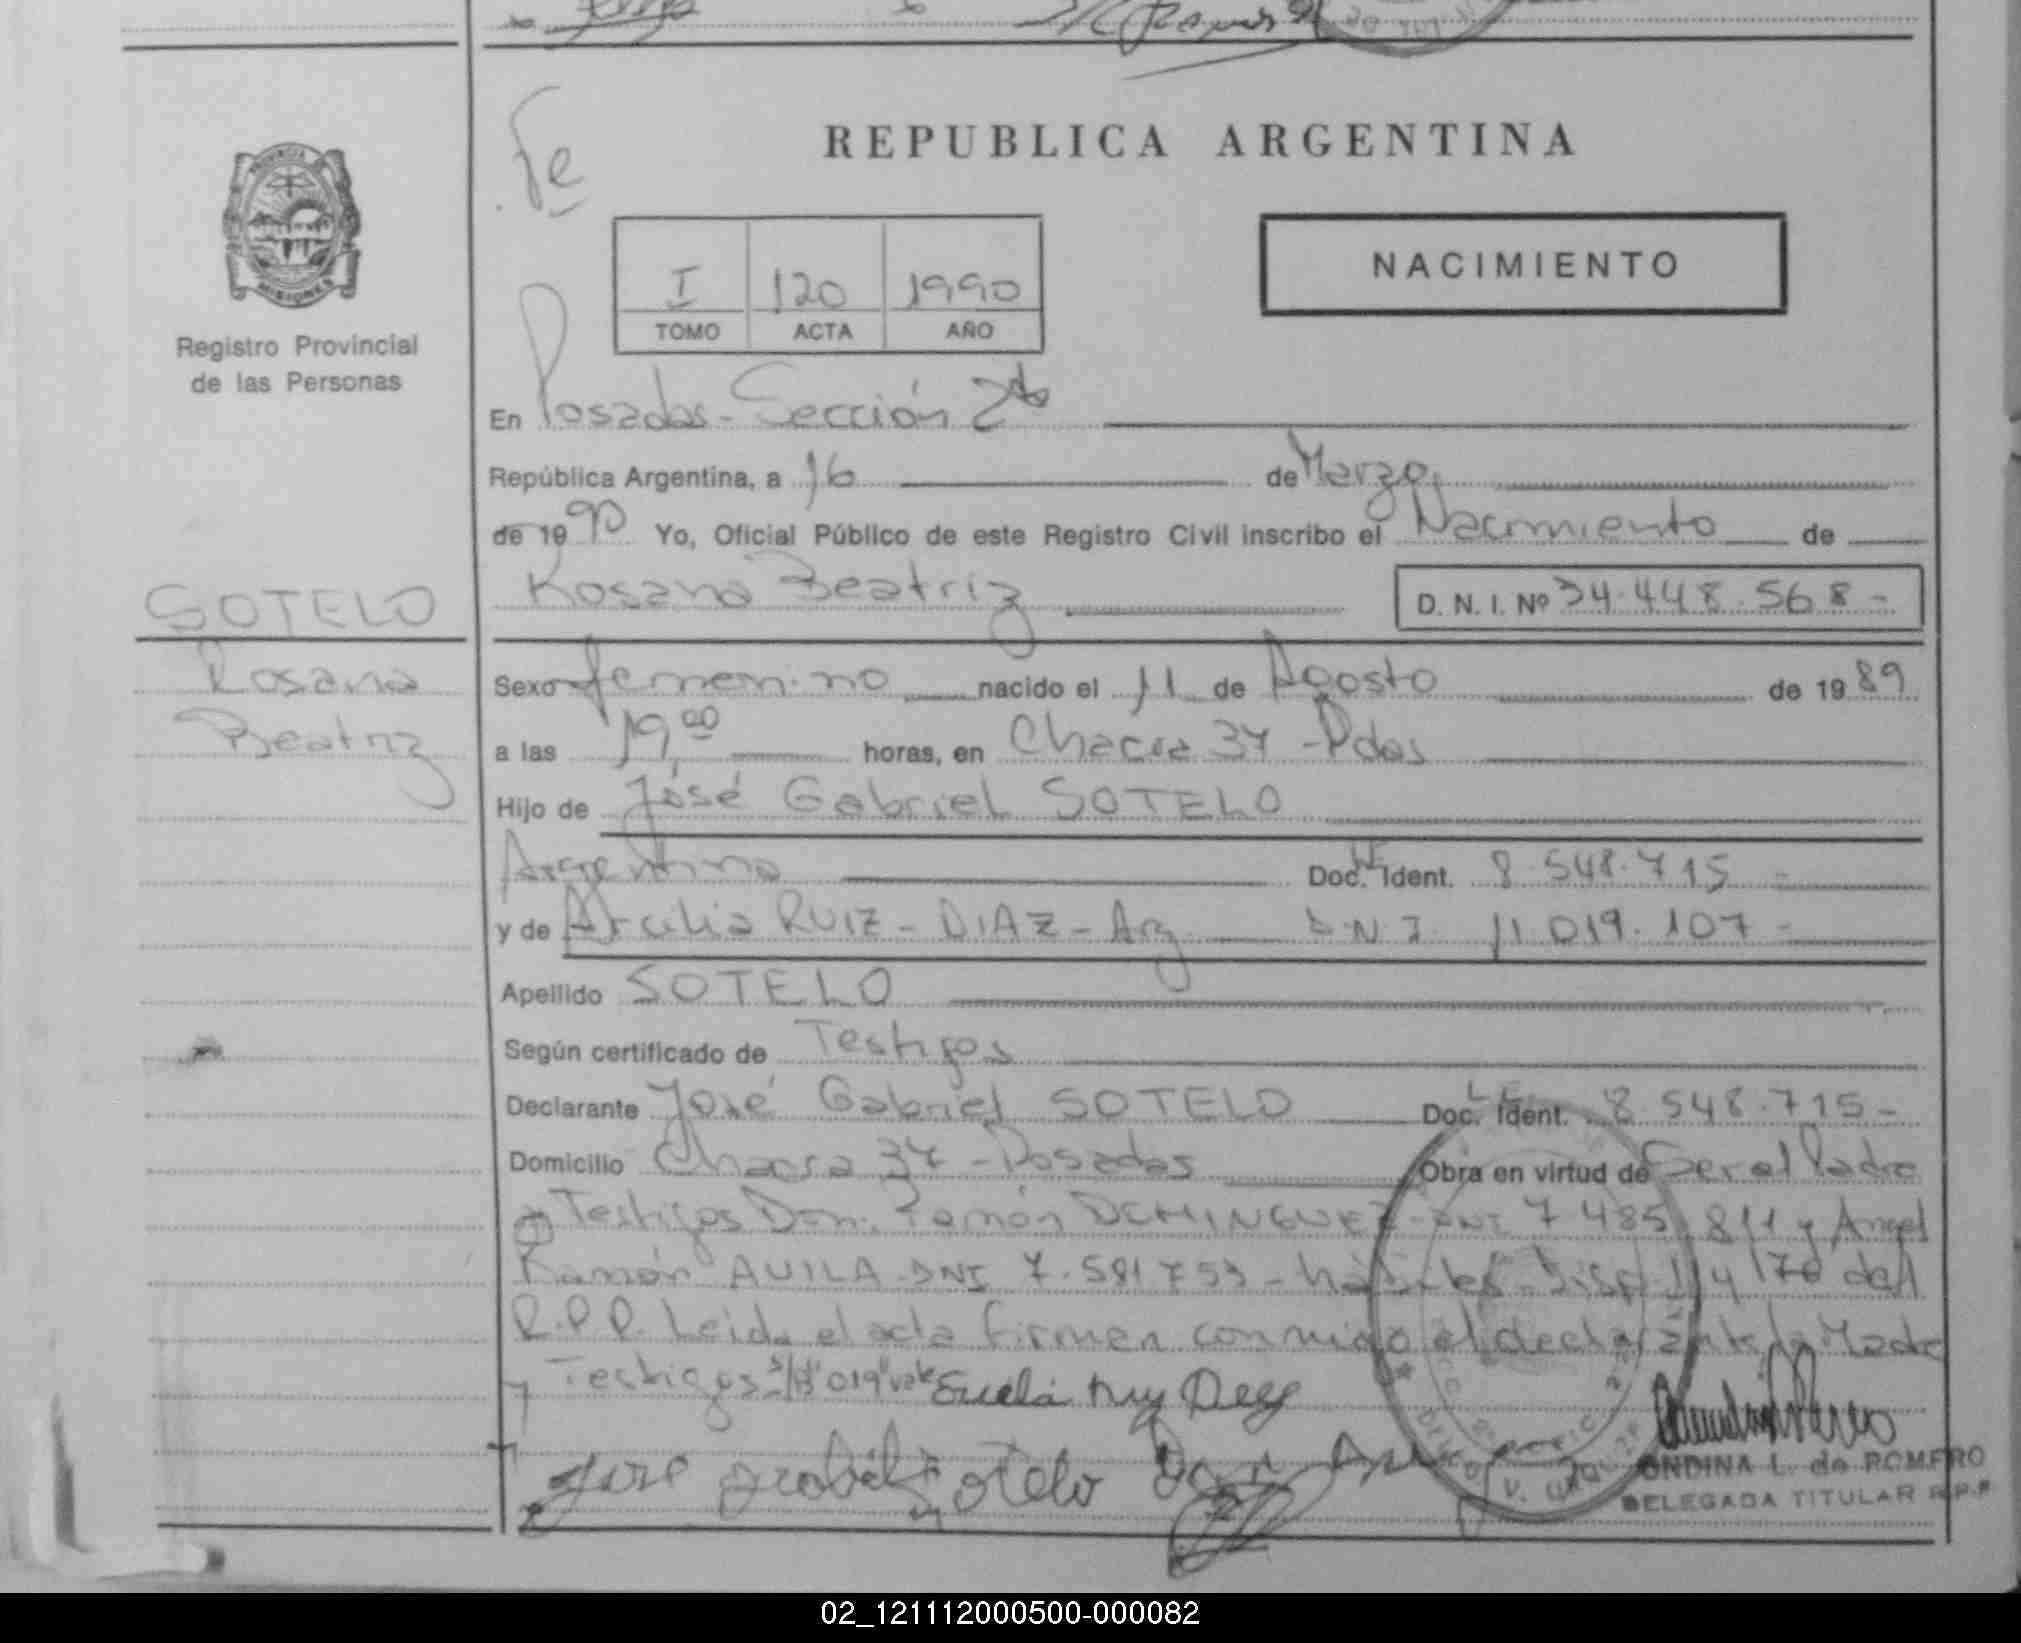 REPUBLICA ARGENTINA
Fe
PROVINCIA
MISIONES
Registro Provincial
de las Personas
NACIMIENTO
I 120 1990
TOMO ACTA AÑO
En Posadas - Sección 2da
República Argentina, a 16 de Marzo
de 1990 Yo, Oficial Público de este Registro Civil inscribo el Nacimiento de
SOTELO
Rosana Beatriz D. N. I. Nº 34.448.568-
Rosana
Beatriz
Sexo femenino nacido el 11 de Agosto de 1989
a las 19,00 horas, en Chacra 37 - Pdas
Hijo de José Gabriel SOTELO
Argentino Doc. Ident. LE 8.548.715-
y de RUIZ - DIAZ - Arg D.N.I. 11.019.107-
Apellido SOTELO
Según certificado de Testigos
Declarante José Gabriel SOTELO Doc. Ident. L.E. 8.548.715-
Domicilio Chacra 37 - Posadas Obra en virtud de Ser el Padre
Testigos Don: Ramón DOMINGUEZ - DNI 7.485.811 y Angel
Ramón AVILA - DNI 7.591.753 - hábiles - Disp. del
R.P.P. Leida el acta firman conmigo el declarante, la Madre
y Testigos - "019" vale
José Gabriel Sotelo
ONDINA L. de ROMERO
DELEGADA TITULAR R.P.P.
02_121112000500-000082